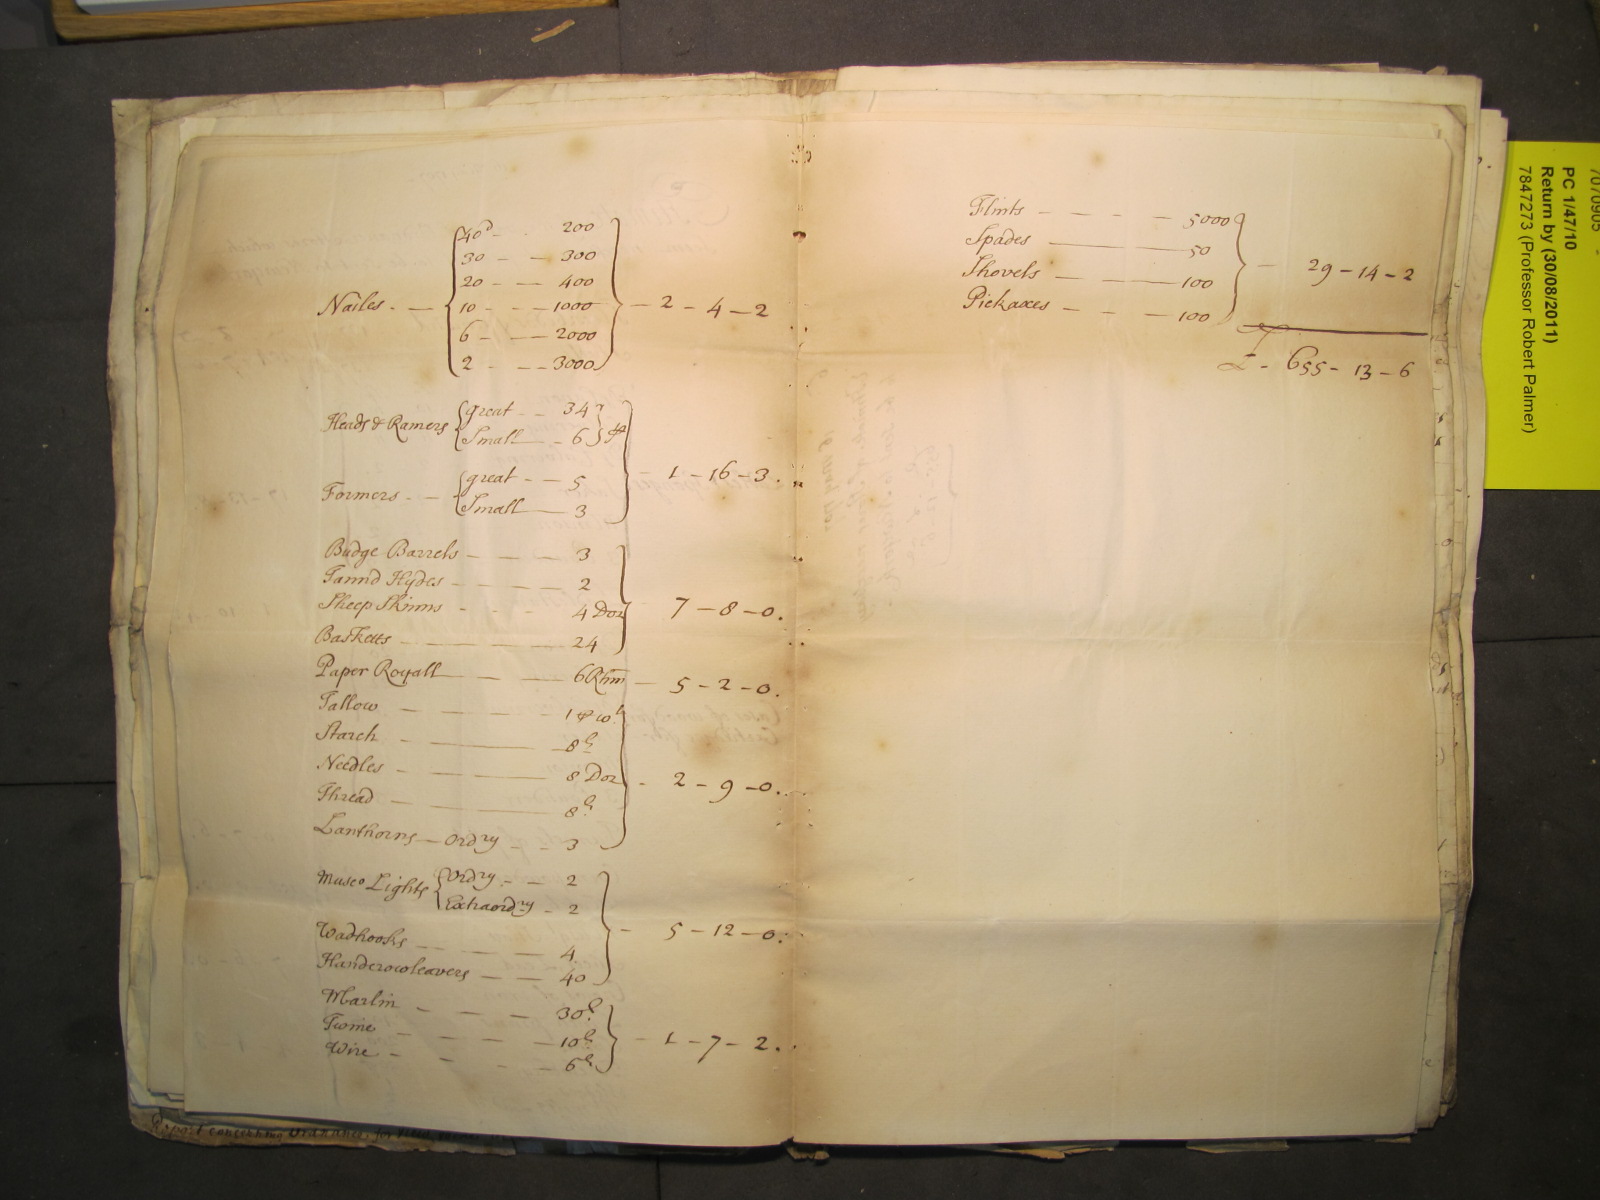 40d - - 200
30 - - 300
20 - - 400
Nailes - - 10 - - - 1000 - 2 - 4 - 2
6 - - - 2000
2 - - - 3000
Heads & Ramers great - - 34
Small - 6
- 1 - 16 - 3.
Formers - - great - - 5
Small - 3
Budge Barrels - - - 3
Tannd Hydes - - - 2
Sheep Skinns - - - 4 Doz - 7 - 8 - 0.
Basketts - - - 24
Paper Royall - - 6 Rhm - 5 - 2 - 0.
Tallow - - - - 1
Starch - - - 8 lb
Needles - - - 8 Doz - 2 - 9 - 0.
Thread - - - 8 lb
Lanthorns - ordry - - 3
Musco Lights Ordry - - 2
Extraordry - 2
- 5 - 12 - 0.
Wadhooks - - - 4
Handcrowleavers - - 40
Marlin - - - 30 lb
Twine - - - 10 lb - 1 - 7 - 2.
Wire - - - 6 lb
Flints - - - - 5000
Spades - 50
- 29 - 14 - 2
Shovels - 100
Pickaxes - - - 100
£ - 655 - 13 - 6
7070905 -
PC 1/47/10
Return by (30/08/2011)
7847273 (Professor Robert Palmer)
Report concerning Ordnance for